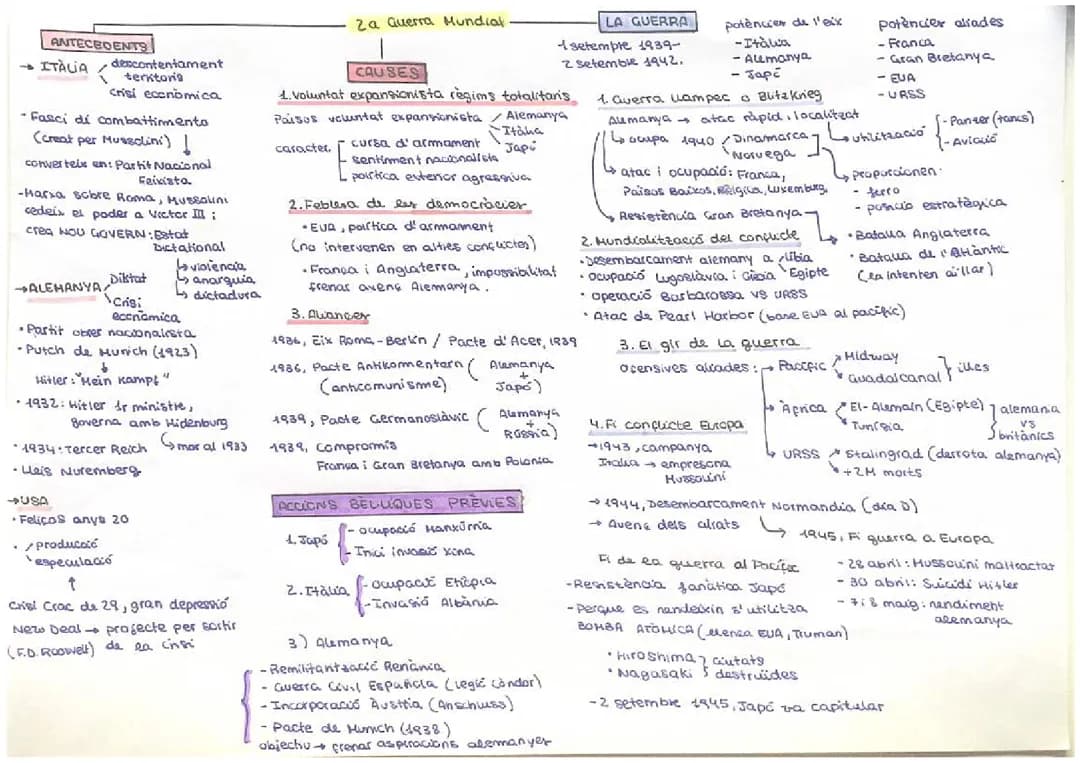 2a Guerra Mundial
ANTECEDENTS
→ ITÀLIA
descontentament
territoris
crisi econòmica
- Fasci di combattimento
(creat per Mussolini)
converteix en: Partit Nacional
Feixista.
- Marxa sobre Roma, Mussolini
cedeix el poder a Victor III;
crea NOU GOVERN: Estat
Dictatorial
↳ violència
↳ anarquia
↳ dictadura
→ ALEMANYA
Diktat
Crisi
econòmica
• Partit obrer nacionalista
• Putch de Munich (1923)
Hitler: "Mein Kampf"
• 1932: Hitler 1r ministre,
governa amb Hidenburg
↳ mor al 1933
• 1934: Tercer Reich
• Lleis Nuremberg
→ USA
• Feliços anys 20
• producció
especulació
↑
Crisi Crac de 29, gran depressió
New Deal → projecte per sortir
(F.D. Roosvelt) de la crisi
CAUSES
1. Voluntat expansionista règims totalitaris
Països voluntat expansionista
Alemanya
Itàlia
Japó
caracter.
cursa d'armament
sentiment nacionalista
política exterior agressiva
2. Feblesa de les democràcies
• EUA, política d'armament
(no intervenen en altres conflictes)
• França i Anglaterra, impossibilitat
frenar avenç Alemanya.
3. Aliances
1936, Eix Roma-Berlín / Pacte d'Acer, 1939
1936, Pacte Antikomentern (Alemanya
+
(anticomunisme) Japó)
1939, Pacte Germanoslàvic (Alemanya
+
Rússia)
1939, Compromís
França i Gran Bretanya amb Polònia
ACCIONS BÈL·LIQUES PRÈVIES
1. Japó
- ocupació Manxúrria
- Inici invasió Xina
2. Itàlia
- ocupació Etiòpia
- Invasió Albània
3) Alemanya
- Remilitarització Renània
- Guerra Civil Española (legió Còndor)
- Incorporació Àustria (Anschluss)
- Pacte de Munich (1938)
objectiu → frenar aspiracions alemanyes
LA GUERRA
1 setembre 1939-
2 setembre 1942.
potències de l'eix
- Itàlia
- Alemanya
- Japó
potències aliades
- França
- Gran Bretanya
- EUA
- URSS
1. Guerra llampec o Blitzkrieg
Alemanya → atac ràpid i localitzat
↳ ocupa 1940
Dinamarca
Noruega
→ utilització
- Panzer (tancs)
- Aviació
↳ proporcionen:
- ferro
- posició estratègica
↳ atac i ocupació: França,
Països Baixos, Bèlgica, Luxemburg.
↳ Resistència Gran Bretanya
• Batalla Anglaterra
• Batalla de l'Atlàntic
(la intenten aïllar)
2. Mundialització del conflicte
• Desembarcament alemany a
Líbia
Egipte
• ocupació Iugoslàvia i Grècia
• operació Barbarossa VS URSS
• Atac de Pearl Harbor (base EUA al pacífic)
3. El gir de la guerra
Ofensives aliades:
→ Pacífic
Midway
Guadalcanal
illes
→ Àfrica
El-Alemain (Egipte)
Tunísia
alemania
vs
britànics
↳ URSS
Stalingrad (derrota alemanya)
+2M morts
4. Fi conflicte Europa
→ 1943, campanya
Itàlia → empresona
Mussolini
→ 1944, Desembarcament Normandia (dia D)
→ Avenç dels aliats
↳ 1945, Fi guerra a Europa
- 28 abril: Mussolini maltractat
- 30 abril: Suicidi Hitler
- 7 i 8 maig: rendiment
alemanya
Fi de la guerra al Pacífic
- Resistència fanàtica Japó
- Perque es rendeixin s'utilitza
BOMBA ATÒMICA (llença EUA, Truman)
• Hiroshima
• Nagasaki
ciutats
destruïdes
- 2 setembre 1945, Japó va capitular